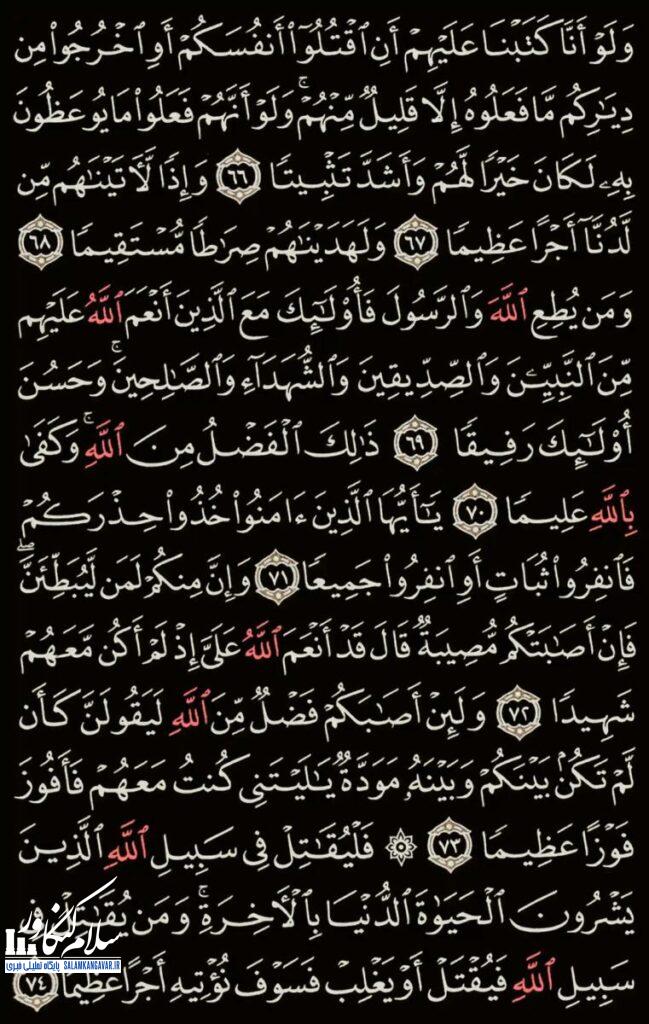 وَلَوْ أَنَّا كَتَبْنَا عَلَيْهِمْ أَنِ ٱقْتُلُوٓا۟ أَنفُسَكُمْ أَوِ ٱخْرُجُوا۟ مِن
دِيَٰرِكُم مَّا فَعَلُوهُ إِلَّا قَلِيلٌ مِّنْهُمْ ۖ وَلَوْ أَنَّهُمْ فَعَلُوا۟ مَا يُوعَظُونَ
بِهِۦ لَكَانَ خَيْرًا لَّهُمْ وَأَشَدَّ تَثْبِيتًا ٦٦ وَإِذًا لَّءَاتَيْنَٰهُم مِّن
لَّدُنَّآ أَجْرًا عَظِيمًا ٦٧ وَلَهَدَيْنَٰهُمْ صِرَٰطًا مُّسْتَقِيمًا ٦٨
وَمَن يُطِعِ ٱللَّهَ وَٱلرَّسُولَ فَأُو۟لَٰٓئِكَ مَعَ ٱلَّذِينَ أَنْعَمَ ٱللَّهُ عَلَيْهِم
مِّنَ ٱلنَّبِيِّـۧنَ وَٱلصِّدِّيقِينَ وَٱلشُّهَدَآءِ وَٱلصَّٰلِحِينَ ۚ وَحَسُنَ
أُو۟لَٰٓئِكَ رَفِيقًا ٦٩ ذَٰلِكَ ٱلْفَضْلُ مِنَ ٱللَّهِ ۚ وَكَفَىٰ
بِٱللَّهِ عَلِيمًا ٧٠ يَٰٓأَيُّهَا ٱلَّذِينَ ءَامَنُوا۟ خُذُوا۟ حِذْرَكُمْ
فَٱنفِرُوا۟ ثُبَاتٍ أَوِ ٱنفِرُوا۟ جَمِيعًا ٧١ وَإِنَّ مِنكُمْ لَمَن لَّيُبَطِّئَنَّ ۖ
فَإِنْ أَصَٰبَتْكُم مُّصِيبَةٌ قَالَ قَدْ أَنْعَمَ ٱللَّهُ عَلَىَّ إِذْ لَمْ أَكُن مَّعَهُمْ
شَهِيدًا ٧٢ وَلَئِنْ أَصَٰبَكُمْ فَضْلٌ مِّنَ ٱللَّهِ لَيَقُولَنَّ كَأَن
لَّمْ تَكُنۢ بَيْنَكُمْ وَبَيْنَهُۥ مَوَدَّةٌ يَٰلَيْتَنِى كُنتُ مَعَهُمْ فَأَفُوزَ
فَوْزًا عَظِيمًا ٧٣ ۞ فَلْيُقَٰتِلْ فِى سَبِيلِ ٱللَّهِ ٱلَّذِينَ
يَشْرُونَ ٱلْحَيَوٰةَ ٱلدُّنْيَا بِٱلْءَاخِرَةِ ۚ وَمَن يُقَٰتِلْ فِى
سَبِيلِ ٱللَّهِ فَيُقْتَلْ أَوْ يَغْلِبْ فَسَوْفَ نُؤْتِيهِ أَجْرًا عَظِيمًا ٧٤
سلام کنگاور
پایگاه تحلیلی خبری SALAMKANGAVAR.IR